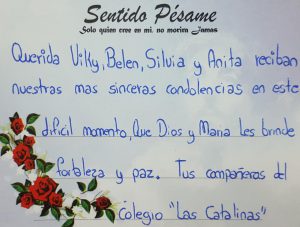 Sentido Pésame
Solo quien cree en mi, no morira Jamas
Querida Vilky, Belen, Silvia y Anita reciban
nuestras mas sinceras condolencias en este
dificil momento, Que Dios y Maria les brinde
fortaleza y paz. Tus compañeras del
Colegio "Las Catalinas"